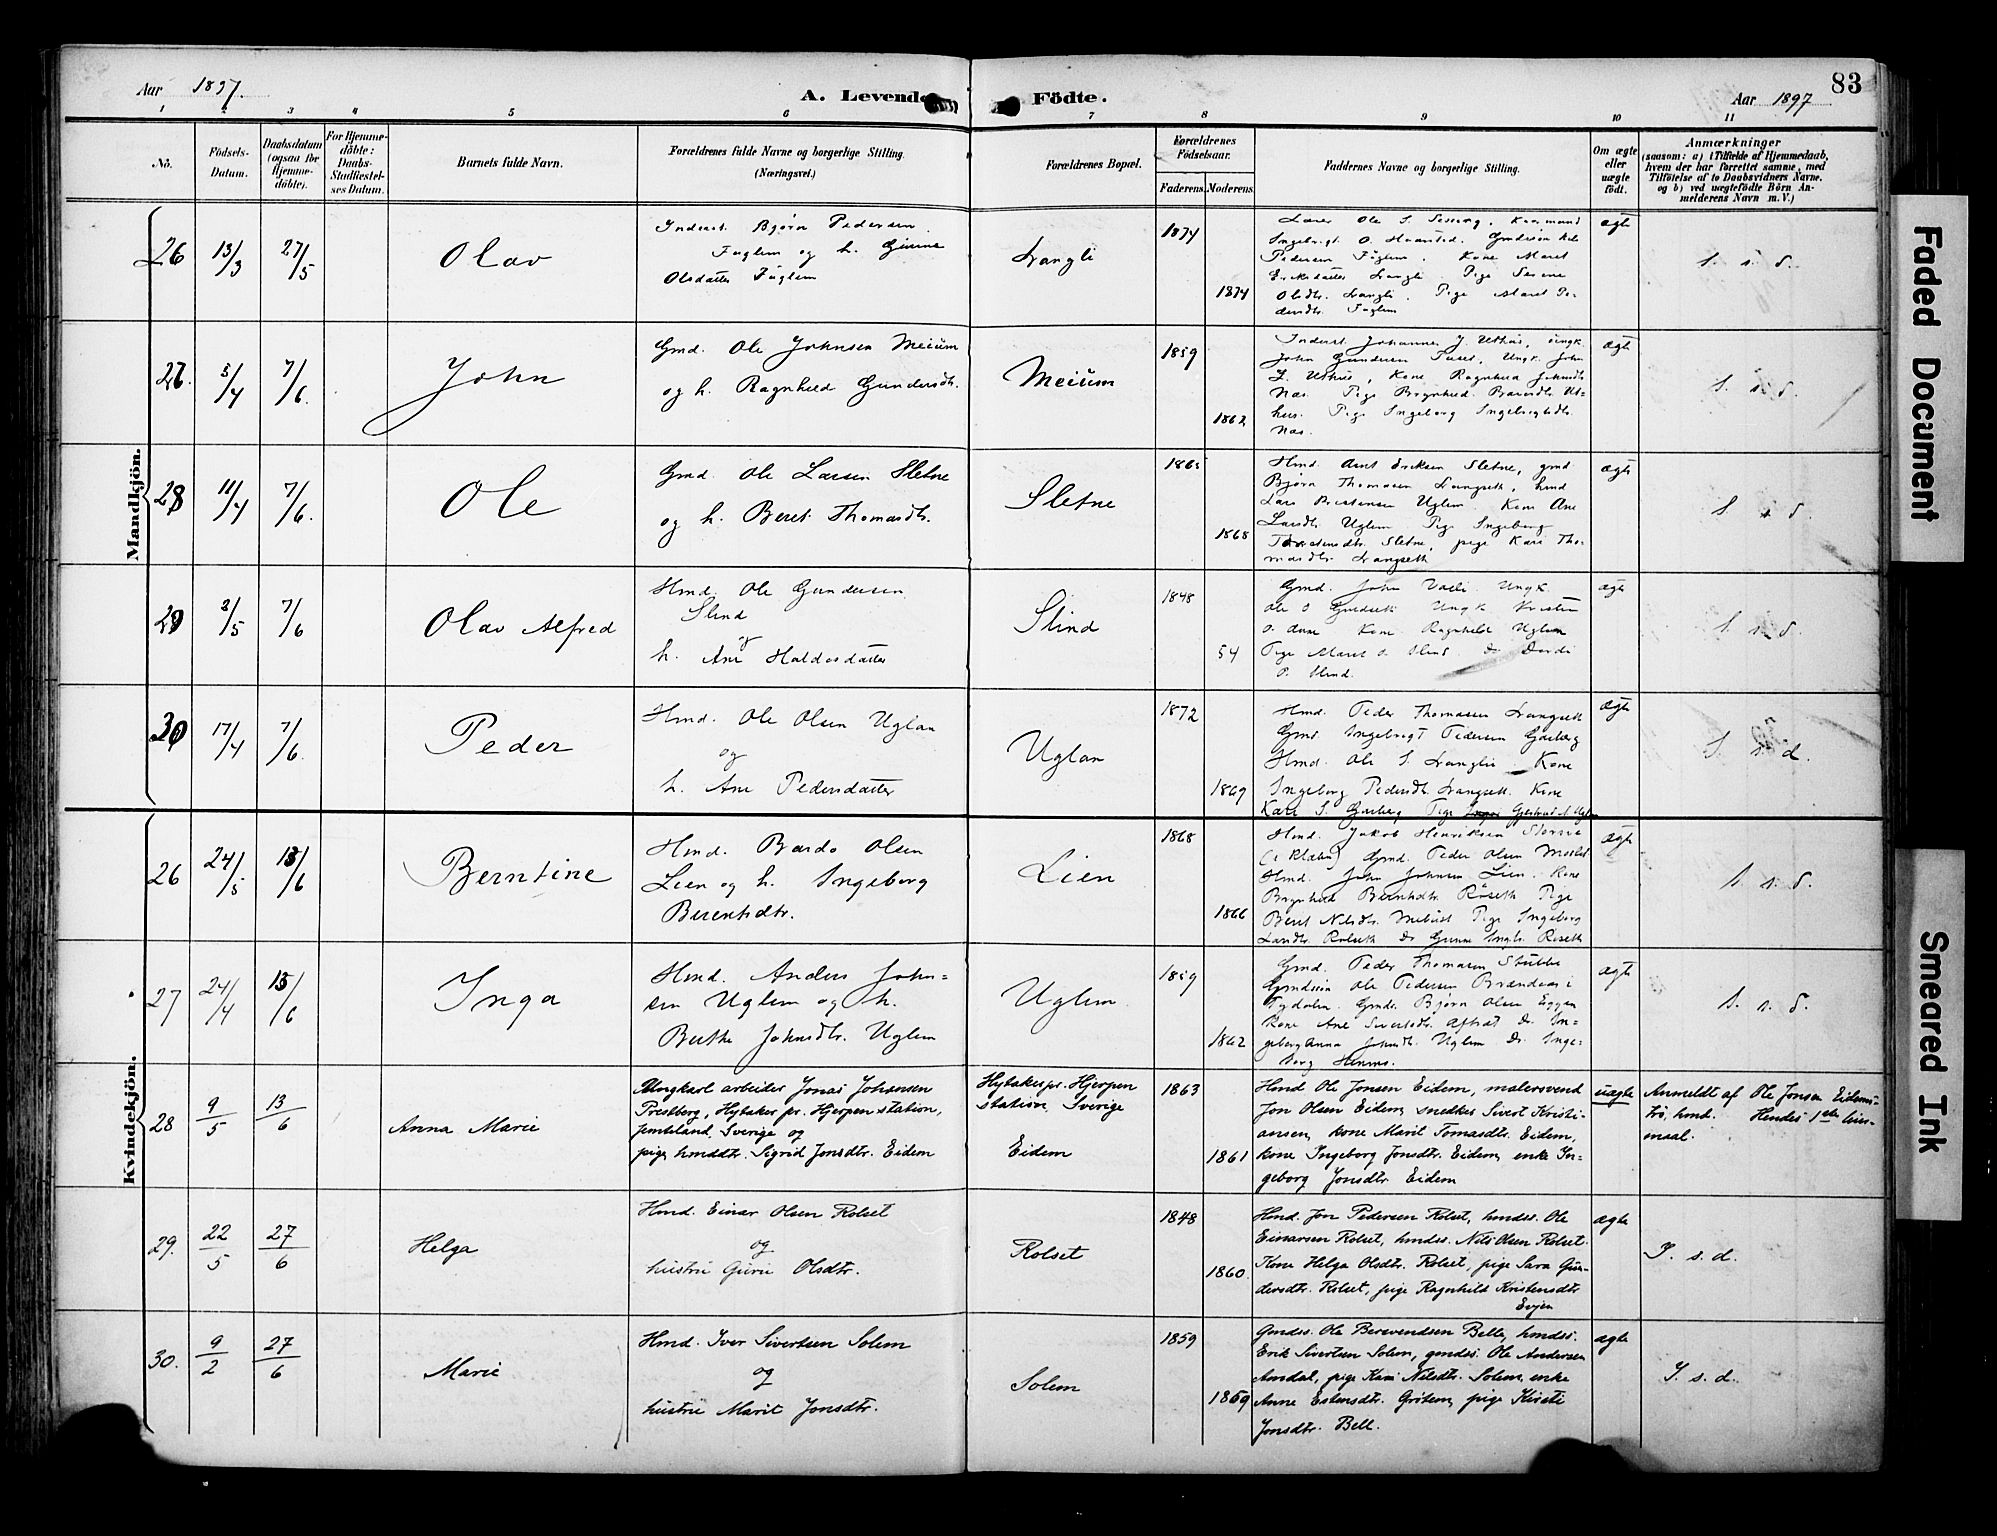 Aar 1897.
A. Levende
Födte.
Aar 1897
83
1 2 3 4 5 6 7 8 9 10 11
No.
Födsels-
Datum.
Daabsdatum
(ogsaa for
Hjemme-
döbte).
For Hjemme-
döbte:
Daabs-
Stadfæstel-
ses Datum.
Barnets fulde Navn.
Forældrenes fulde Navne og borgerlige Stilling.
(Næringsvei.)
Forældrenes Bopæl.
Forældrenes
Födselsaar.
Faderens.
Moderens.
Faddernes Navne og borgerlige Stilling.
Om ægte
eller
uægte
födt.
Anmærkninger
(saasom: a) i Tilfælde af Hjemmedaab,
hvem der har forrettet samme, med
Tilföielse af to Daabsvidners Navne.
og b) ved uægtefödte Börn An-
melderens Navn m.V.)
Mandkjön.
26
13/3
27/5
Olav
Inderst. Bjørn Pedersen
Fuglem og h. Gunne
Olsdatter Fuglem
Langli
1874
1874
Lærer Ole S.
Ingebrigt O.
Pedersen Fuglem. Kone Maret
Eriksdatter Langli. Pige Serene
Olsdtr. Langli. Pige Maret Pe-
dersdtr. Fuglem
ægte
S. s. d.
27.
5/4
7/6
John
Gmd. Ole Johnsen Meium
og h. Ragnhild Gundersdtr.
Meium
1859
1862
Inderst. Johannes J. Uthus, ungk.
John Gundersen Tuset, Ungk. John
J. Uthus, Kone Ragnhild Johnsdtr.
Næs. Pige Brynhild Uthus. Pige Ingeborg Ingebrigtsdtr.
Næs.
ægte
S. s. d.
28
11/4
7/6.
Ole
Gmd. Ole Larsen Sletne
og h. Beret Thomasdtr.
Sletne
1865
1868
Hmd. Arnt Eriksen Sletne, gmd
Bjørn Thomasen Langseth, hmd
Lars Uglem. Kone Ane
Larsdtr. Uglem Pige Ingeborg
Torstensdtr. Sletne, pige Kari Tho-
masdtr. Langseth
ægte
S. s. d.
29
3/5
7/6
Olav Alfred
Hmd. Ole Gundersen
Slind
og
h. Ane Haldosdatter
Slind
1848
54
Gmd. John Ungk
Ole O Ungk Kristen
O. Aune Kone Ragnhild Uglem
Pige Maret O. Slind. do Dordi
O. Slind.
ægte
S. s. d.
30
17/4
7/6.
Peder
Hmd. Ole Olsen Uglan
og
h. Ane Pedersdatter
Uglan
1872
1869
Hmd. Peder Thomasen Langseth
Gmd. Ingebrigt Pedersen Garberg
Hmd. Ole S. Langlie. Kone
Ingeborg Pedersdtr. Langseth. Kone
Kari S. Garberg, Pige Gjertrud
ægte
S. s. d.
Kvindekjön.
26
24/5
13/6
Berntine
Hmd. Bardo Olsen
Lien og h. Ingeborg
Berentsdtr.
Lien
1868
1866
Hmd. Jakob Henriksen
(i Klæbu) Gmd. Peder Olsen
Hmd. John Johnsen Lien. Kone
Brynhild Berntsdtr. Röseth Pige
Beret Nilsdtr. Mebust Pige Ingeborg
Larsdtr. Rolseth do Gunne
ægte
S. s. d.
27
24/4
13/6
Inga
Hmd. Anders John-
sen Uglem og h.
Berthe Johnsdtr. Uglem
Uglem.
1859
1862
Gmd. Peder Thomasen Stubbe
Gmdssön Ole Pedersen i
Tydalen. Gmds. Bjørn Olsen Eggen
Kone Ane Sivertsdtr. Aftret do In-
geborg Anna Johnsdtr. Uglem do Inge-
borg
ægte
S. s. d.
28
9/5
13/6
Anna Marie
Ungkarl arbeider Jonas Johansen
Prestberg, Hytaker pr. Hjerpen station,
Jemteland, Sverige og
pige, hmddtr. Sigrid Jonsdtr. Eidem
Hytaker pr. Hjerpen
station, Sverige
Eidem
1863
1861
Hmd Ole Jonsen Eidem, malersvend
Jon Olsen Eidem, snedker Sivert Kristi-
ansen, kone Marit Tomasdtr. Eidem,
kone Ingeborg Jonsdtr. Eidem, enke In-
geborg Jonsdtr Eidem
uægte
Anmeldt af Ole Jonsen Eidems-
tró, hmd. Hendes 1ste leier-
maal.
29.
22/5
27/6
Helga
Hmd. Einar Olsen Rolset
og
hustru Guru Olsdtr.
Rolset
1848
1860.
Hmd. Jon Pedersen Rolset, hmdss. Ole
Einarsen Rolset, hmdss. Nils Olsen Rolset.
Kone Helga Olsdtr. Rolset, pige Sara Gun-
dersdtr. Rolset, pige Ragnhild Kristensdtr
Evjen
ægte
S. s. d.
30.
9/2
27/6
Marie
Hmd. Iver Sivertsen Solem
og
hustru Marit Jonsdtr.
Solem
1859
1859
Gmdss. Ole Berevendsen Bell, hmdss.
Erik Sivertsen Solem, gmdss. Ole Andersen
Amdal, pige Kari Nilsdtr. Solem, enke
Anne Estensdtr. Gröten, pige Kirsti
Jonsdtr. Bell.
ægte
S. s. d.
Faded Document
Smeared Ink